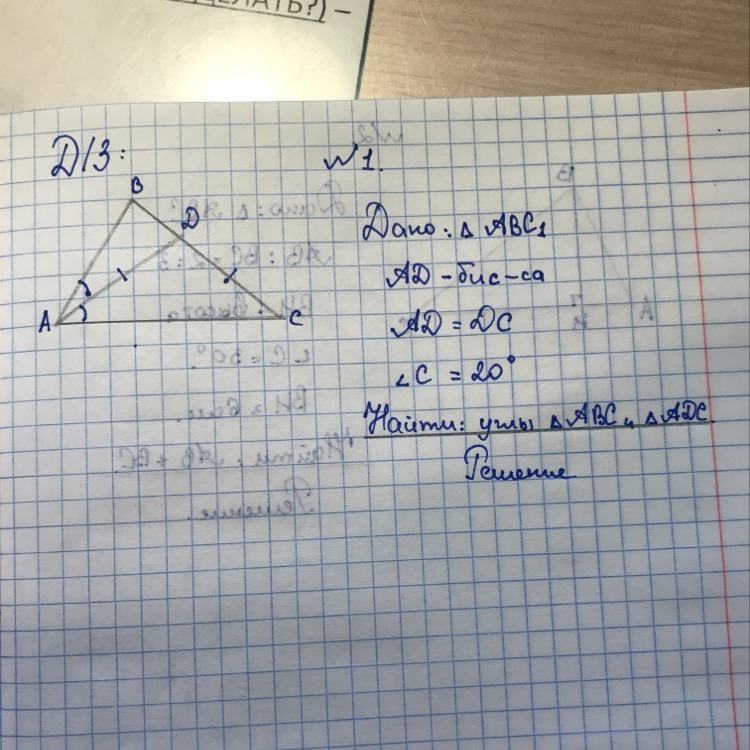 ДЕЛАТЬ?) –
Д/З:
№1.
B
D
A
C
Дано: △ ABC,
AD - бис-са
AD = DC
∠C = 20°
Найти: углы △ ABC и △ ADC.
Решение